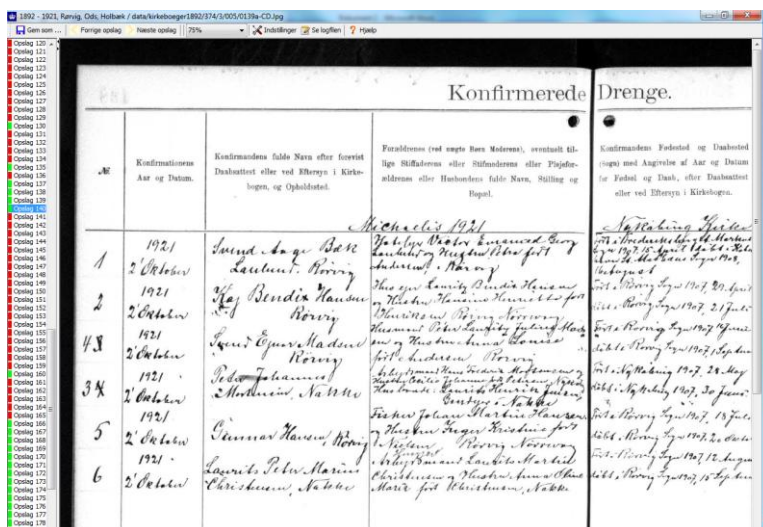 1892 - 1921, Rørvig, Ods, Holbæk / data/kirkeboeger1892/374/3/005/0139a-CD.jpg
Gem som ... Forrige opslag Næste opslag 75% Indstillinger Se logfilen Hjælp
Opslag 120
Opslag 121
Opslag 122
Opslag 123
Opslag 124
Opslag 125
Opslag 126
Opslag 127
Opslag 128
Opslag 129
Opslag 130
Opslag 131
Opslag 132
Opslag 133
Opslag 134
Opslag 135
Opslag 136
Opslag 137
Opslag 138
Opslag 139
Opslag 140
Opslag 141
Opslag 142
Opslag 143
Opslag 144
Opslag 145
Opslag 146
Opslag 147
Opslag 148
Opslag 149
Opslag 150
Opslag 151
Opslag 152
Opslag 153
Opslag 154
Opslag 155
Opslag 156
Opslag 157
Opslag 158
Opslag 159
Opslag 160
Opslag 161
Opslag 162
Opslag 163
Opslag 164
Opslag 165
Opslag 166
Opslag 167
Opslag 168
Opslag 169
Opslag 170
Opslag 171
Opslag 172
Opslag 173
Opslag 174
Opslag 175
Opslag 176
Opslag 177
Opslag 178
Konfirmerede Drenge.
№
Konfirmationens
Aar og Datum.
Konfirmandens fulde Navn efter forevist
Daabsattest eller ved Eftersyn i Kirke-
bogen, og Opholdssted.
Forældrenes (ved uægte Børn Moderens), eventuelt til-
lige Stiffaderens eller Stifmoderens eller Plejefor-
ældrenes eller Husbondens fulde Navn, Stilling og
Bopæl.
Konfirmandens Fødested og Daabssted
(Sogn) med Angivelse af Aar og Datum
for Fødsel og Daab, efter Daabsattest
eller ved Eftersyn i Kirkebogen.
Michaelis 1921
Nykøbing Kirke
1
1921
2' Oktober
Svend Aage Bæk
Laulund. Rørvig
Victor Emanuel Georg
Laulund og Hustru Petra født
Andersen, Rørvig
2
1921
2' Oktober
Kaj Bendix Hansen
Rørvig
Laurits Bendix Hansen
og Hustru Hansine Henriette født
Henriksen Rørvig
født i Rørvig Sogn 1907, 29 April
døbt i Rørvig Sogn 1907, 21 Juli
4
1921
2' Oktober
Svend Ejnar Madsen
Rørvig
Husmand Peter Laurits Julius Mad-
sen og Hustru Anna Louise
født Andersen Rørvig
født i Rørvig Sogn 1907
døbt i Rørvig Sogn 1907, 1 September
3
1921
2' Oktober
Peter Johannes
Mortensen, Nakke
Arbejdsmand Hans Fredrik Mortensen og
Hustru Cecilie Johanne født Petersen
Nakke
født i Nykøbing 1907, 24 Maj
døbt i Nykøbing 1907, 30 Juni
5
1921
2' Oktober
Gunnar Hansen, Rørvig
Fisker Johan Martin Hansen
og Hustru Inger Kristine født
Nielsen, Rørvig
født i Rørvig Sogn 1907, 18 Juli
døbt i Rørvig Sogn 1907, 20
6
1921
2' Oktober
Laurits Peter Marius
Christensen, Nakke
Arbejdsmand Laurits Martin
Christensen og Hustru Anna Oline
Marie født Christensen, Nakke
født i Rørvig Sogn 1907, 12 August
døbt i Rørvig Sogn 1907, 15 September